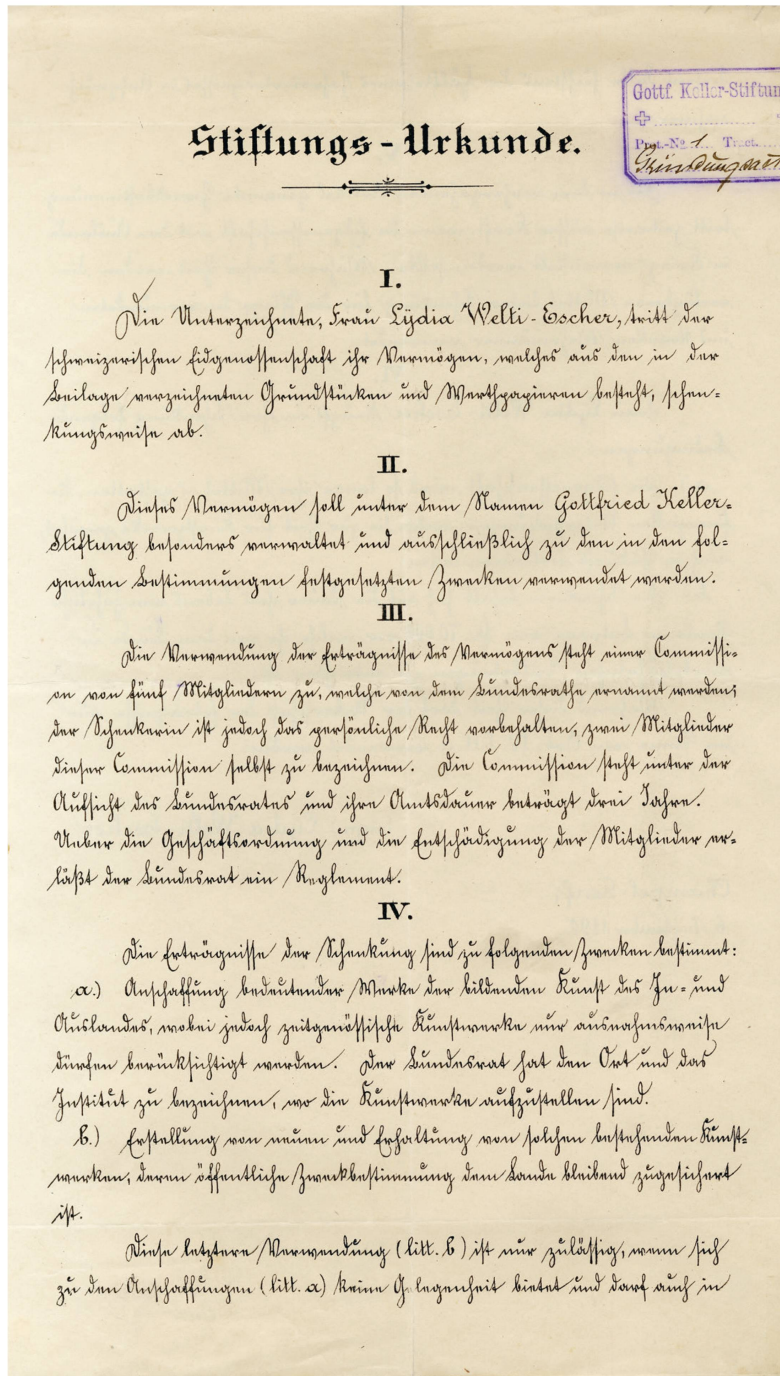 Gottf. Keller-Stiftun
Prot.-No 1 Tract.
Stiftungs-Urkunde.
I.
Die Unterzeichnete, Frau Lydia Welti-Escher, tritt der
schweizerischen Eidgenossenschaft ihr Vermögen, welches aus den in der
Beilage verzeichneten Grundstücken und Werthpapieren besteht, schen-
kungsweise ab.
II.
Dieses Vermögen soll unter dem Namen Gottfried Keller-
Stiftung besonders verwaltet und ausschließlich zu den in den fol-
genden Bestimmungen festgesetzten Zwecken verwendet werden.
III.
Die Verwendung der Erträgnisse des Vermögens steht einer Commissi-
on von fünf Mitgliedern zu, welche von dem Bundesrathe ernannt werden;
der Schenkerin ist jedoch das persönliche Recht vorbehalten, zwei Mitglieder
dieser Commission selbst zu bezeichnen. Die Commission steht unter der
Aufsicht des Bundesrates und ihre Amtsdauer beträgt drei Jahre.
Ueber die Geschäftsordnung und die Entschädigung der Mitglieder er-
läßt der Bundesrat ein Reglement.
IV.
Die Erträgnisse der Schenkung sind zu folgenden Zwecken bestimmt:
a.) Anschaffung bedeutender Werke der bildenden Kunst des In- und
Auslandes, wobei jedoch zeitgenössische Kunstwerke nur ausnahmsweise
dürfen berücksichtigt werden. Der Bundesrat hat den Ort und das
Institut zu bezeichnen, wo die Kunstwerke aufzustellen sind.
b.) Erstellung von neuen und Erhaltung von solchen bestehenden Kunst-
werken, deren öffentliche Zweckbestimmung dem Lande bleibend zugesichert
ist.
Diese letztere Verwendung (litt. b) ist nur zulässig, wenn sich
zu den Anschaffungen (litt. a) keine Gelegenheit bietet und darf auch in